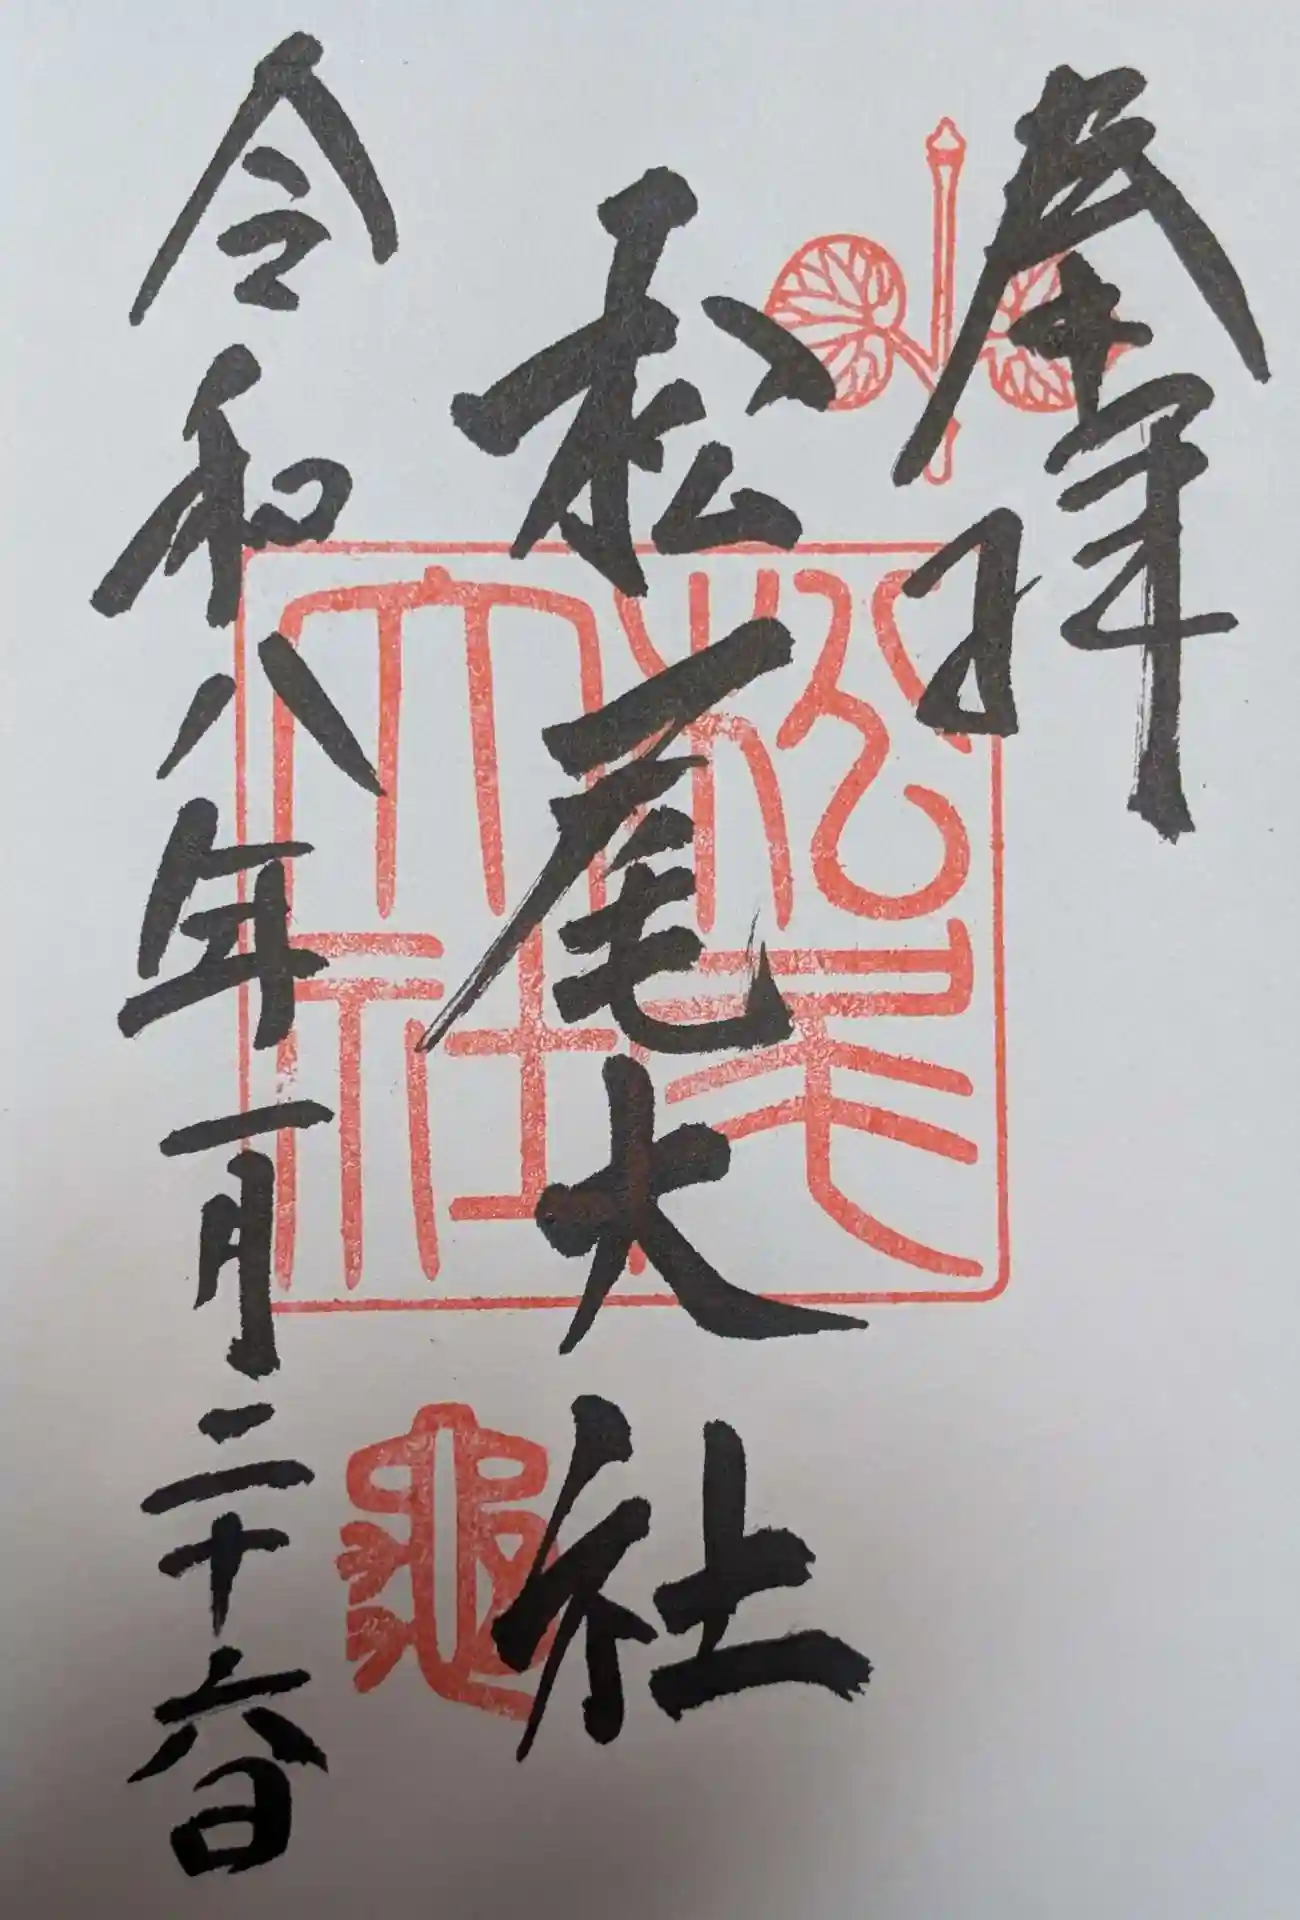 奉拝
松尾大社
松尾大社
龜
令和八年一月二十六日